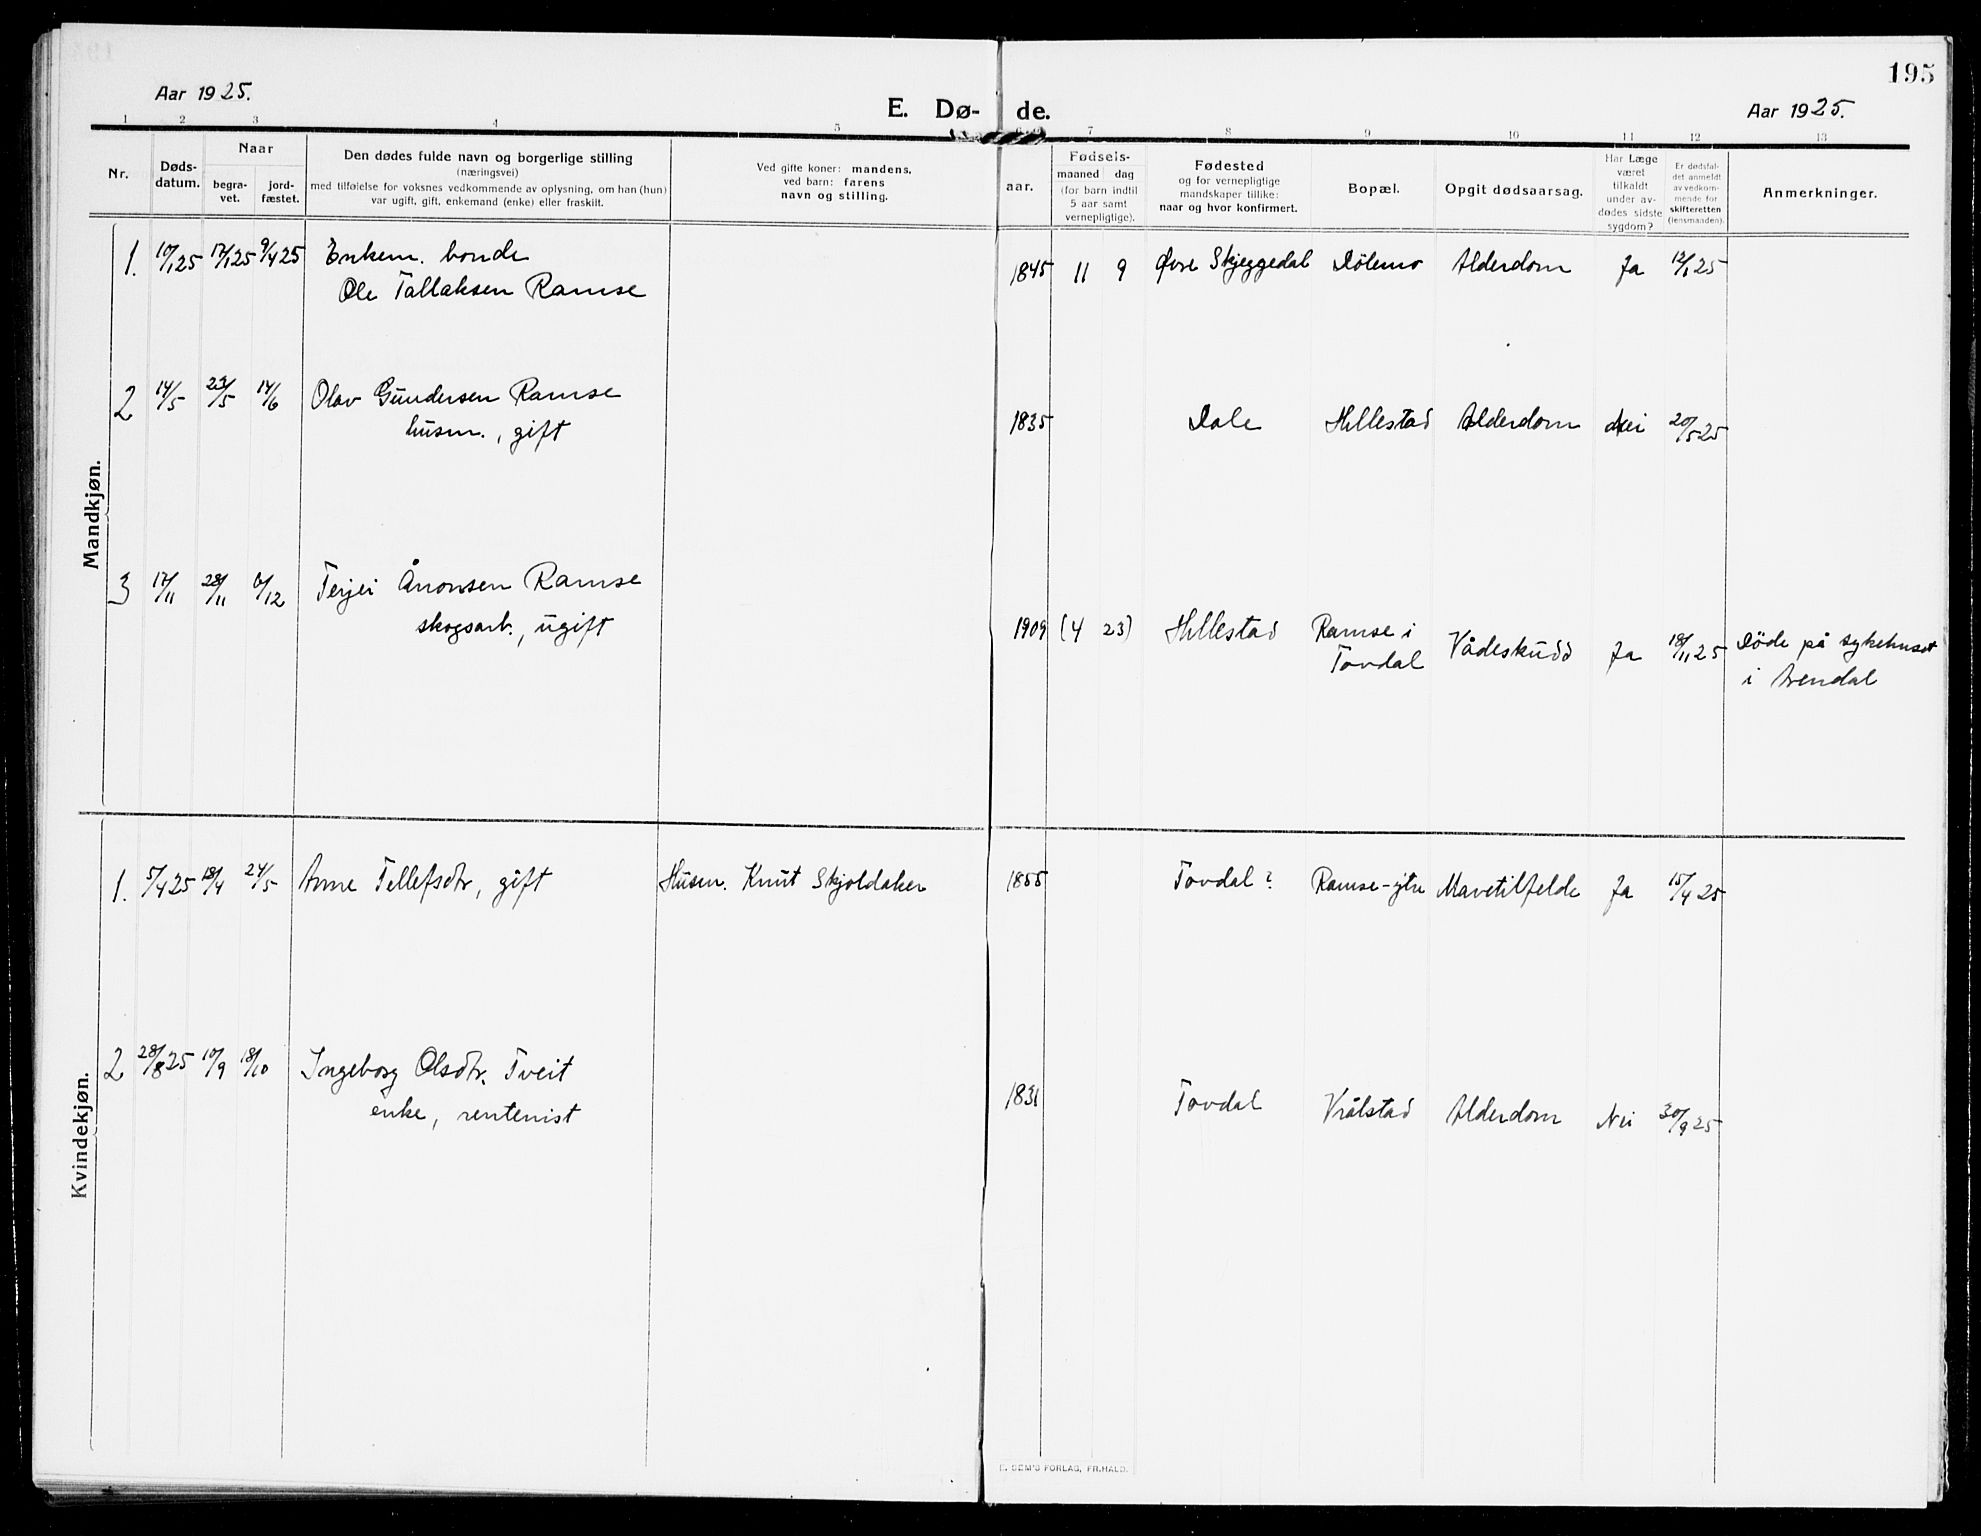 195
Aar 1925.
E. Dø- de.
Aar 1925.
1 2 3 4 5 7 8 9 10 11 12 13
Nr.
Døds-
datum.
Naar
begra-
vet.
jord-
fæstet.
Den dødes fulde navn og borgerlige stilling
(næringsvei)
med tilføielse for voksnes vedkommende av oplysning, om han (hun)
var ugift, gift, enkemand (enke) eller fraskilt.
Ved gifte koner: mandens,
ved barn: farens
navn og stilling.
aar.
Fødsels-
maaned dag
(for barn indtil
5 aar samt
vernepligtige).
Fødested
og for vernepligtige
mandskaper tillike:
naar og hvor konfirmert.
Bopæl.
Opgit dødsaarsag.
Har Læge
været
tilkaldt
under av-
dødes sidste
sygdom?
Er dødsfal-
det anmeldt
av vedkom-
mende for
skifteretten
(lensmanden).
Anmerkninger.
Mandkjøn.
1. 10/1 25 17/1 25 9/4 25 Enkem. bonde
Ole Tallaksen Ramse
1845 11 9 Øvre Skjeggedal Dölemo Alderdom Ja 12/1 25
2 14/5 23/5 14/6 Olav Gundersen Ramse
husm., gift
1835 Dale Hillestad Alderdom Nei 20/5 25
3 17/11 28/11 6/12 Terjei Ånonsen Ramse
skogsarb., ugift
1909 (4 23) Hillestad Ramse i
Tovdal Vådeskudd Ja 18/11 25 Döde på sykehuset
i Arendal
Kvindekjøn.
1. 5/4 25 18/4 24/5 Anne Tellefsdtr, gift Husm. Knut Skjoldaker
1855 Tovdal? Ramse-ytre Mavetilfelde Ja 15/4 25
2 28/8 25 10/9 18/10 Ingeborg Olsdtr. Tveit
enke, rentenist
1831 Tovdal Vrålstad Alderdom Nei 30/9 25
SEM'S FORLAG, FR.HALD.